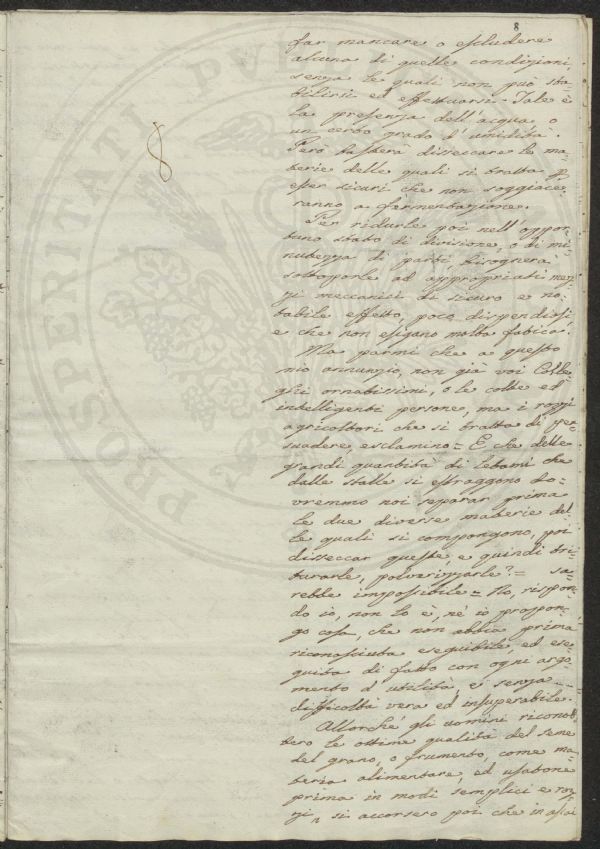 8
far mancare o escludere
alcuna di quelle condizioni,
senza le quali non può sta=
bilirsi ed effettuarsi. Tale è
la presenza dell'acqua, o
un certo grado d'umidità.
Però basterà disseccare le ma=
terie delle quali si tratta p
esser sicuri che non soggiace=
ranno a fermentazione.
Per ridurle poi nell'oppor=
tuno stato di divisione, o di mi=
nutezza di parti, bisognerà
sottoporle ad appropriati mez=
zi meccanici di sicuro e no=
tabile effetto, poco dispendiosi
e che non esigano molta fatica.
Ma parmi che a questo
mio annunzio, non già voi Colle=
ghi ornatissimi, o le colte ed
intelligenti persone, ma i rozzi
agricoltori che si tratta di per
suadere esclamino = E che delle
grandi quantità di letami che
dalle stalle si estraggono do=
vremmo noi separar prima
le due diverse materie del=
le quali si compongono, poi
disseccar queste, e quindi tri
turarle, polverizzarle? = sa=
rebbe impossibile = No, rispon=
do io, non lo è, nè io propon=
go cosa, che non abbia prima
riconosciuta eseguibile, ed ese=
guita di fatto con ogni argo=
mento d'utilità, e senza
difficoltà vera ed insuperabile.
Allorchè gli uomini riconob
bero le ottime qualità del seme
del grano, o frumento, come ma=
teria alimentare, ed usatone
prima in modi semplici e roz=
zi, si accorsero poi che in assai
8
PROSPERITATI PVBL